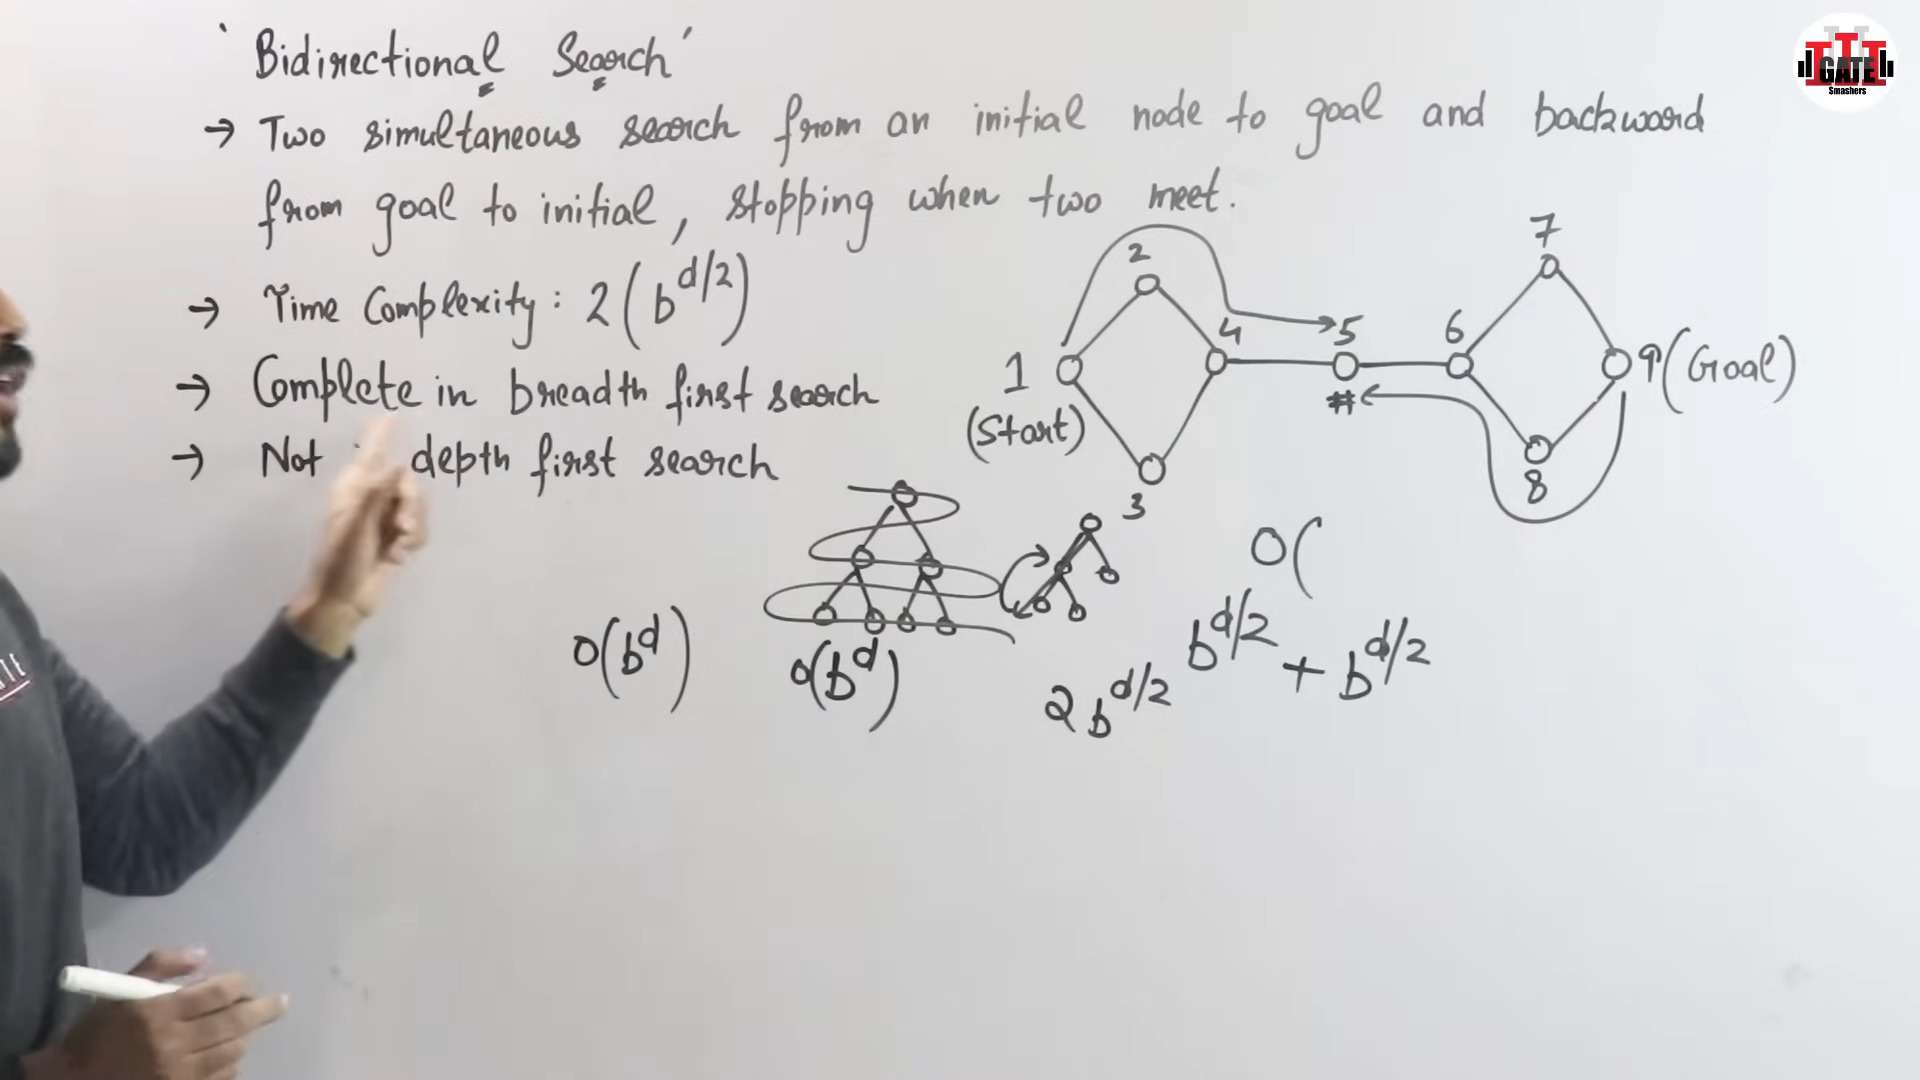 'Bidirectional Search'
→ Two simultaneous search from an initial node to goal and backward
from goal to initial, stopping when two meet.
→ Time Complexity: 2(b^d/2)
→ Complete in breadth first search
→ Not depth first search
1
(Start)
2
3
4
5
6
7
8
9(Goal)
#
O(
O(b^d)
O(b^d)
b^d/2 + b^d/2
2b^d/2
GATE
Smashers